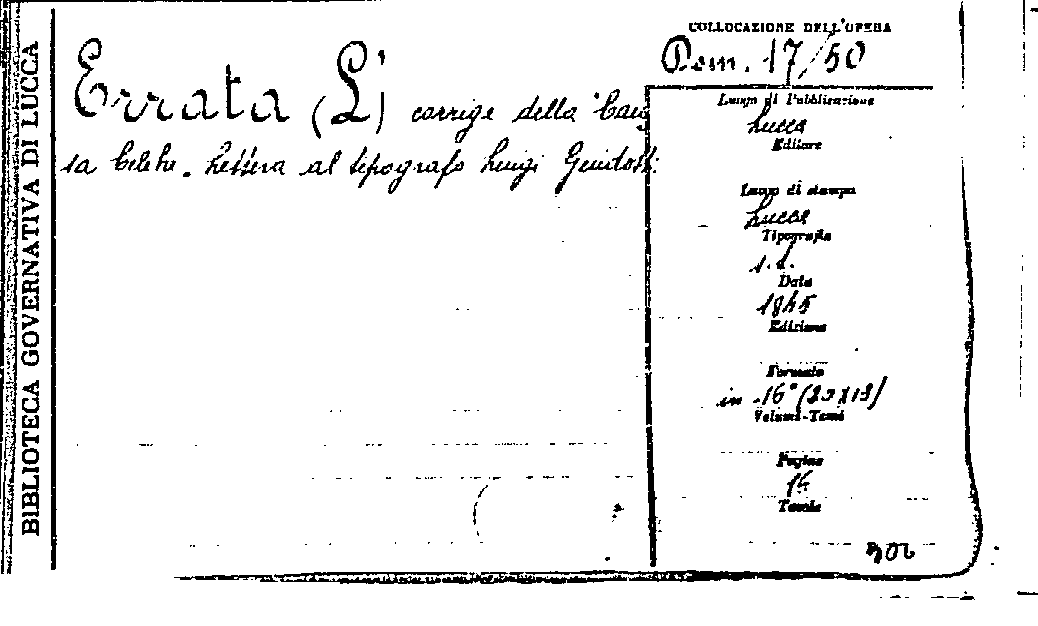 BIBLIOTECA GOVERNATIVA DI LUCCA
COLLOCAZIONE DELL'OPERA
Dom. 17/50
Errata (L') corrige della Cau
sa Celebre. Lettera al tipografo Luigi Guidotti
Luogo di Pubblicazione
Lucca
Editore
Luogo di stampa
Lucca
Tipografia
s.d.
Data
1845
Edizione
Formato
in 16° (20x13)
Volumi-Tomi
Pagine
16
Tavole
302